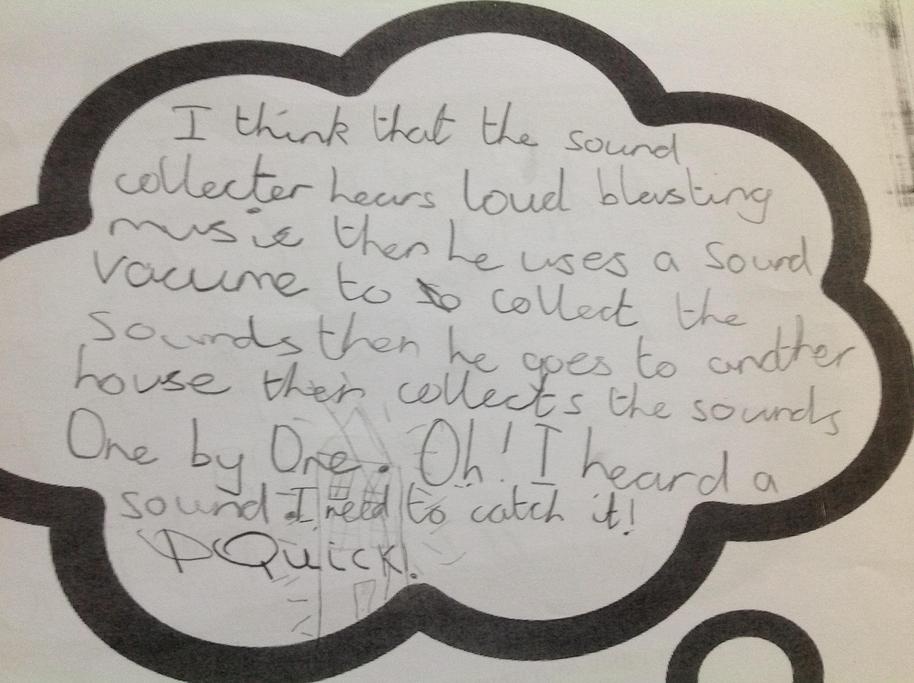 I think that the sound
collecter hears loud blasting
music then he uses a sound
vacume to collect the
sounds then he goes to another
house then collects the sounds
One by One. Oh! I heard a
sound I need to catch it!
Quick!